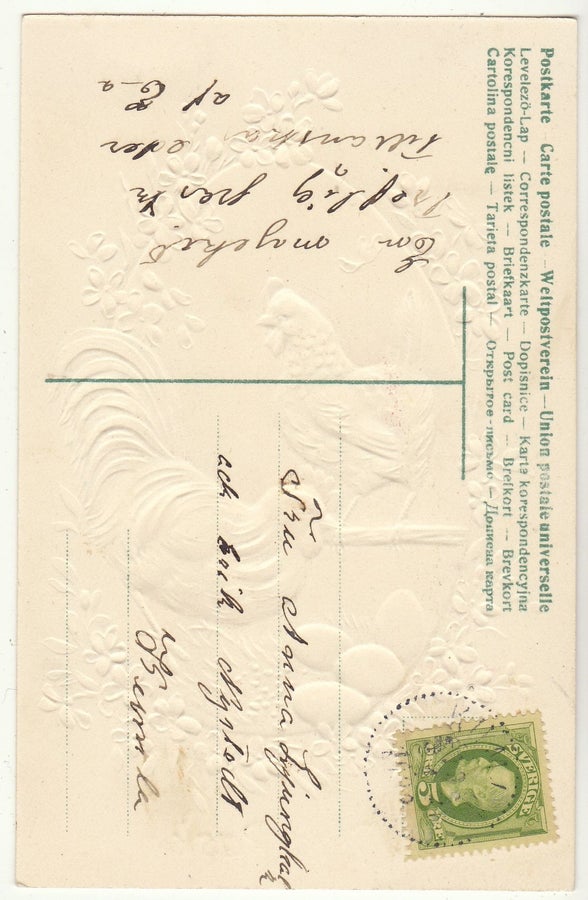 Postkarte — Carte postale — Weltpostverein — Union postale universelle
Levelező-Lap — Correspondenzkarte — Dopisnice — Karta korespondencyjna
Korespondencni listek — Briefkaart — Post card — Brefkort — Brevkort
Cartolina postale — Tarjeta postal — Открытое-письмо — Дописна карта
En mycket
treflig
eder
af E-a
Fru Anna
och Erik Nystedt
Kumla
SVERIGE
5 ÖRE